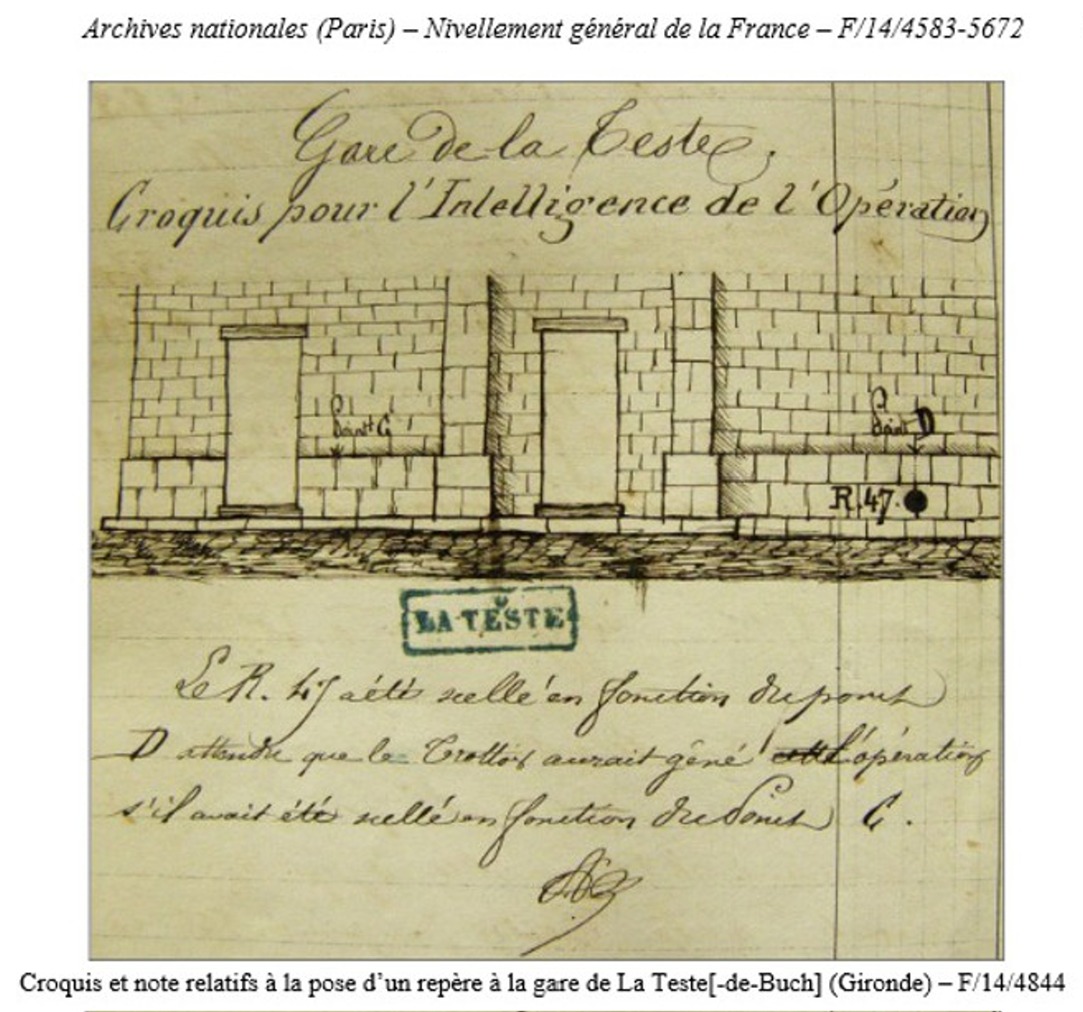 Archives nationales (Paris) – Nivellement général de la France – F/14/4583-5672
Gare de la Teste,
Croquis pour l'Intelligence de l'Opération
Point C
Point D
R.47.
LA TESTE
Le R. 47 a été scellé en fonction du point
D attendu que le Trottoir aurait géné l'opération
s'il avait été scellé en fonction du Point C.
Croquis et note relatifs à la pose d'un repère à la gare de La Teste[-de-Buch] (Gironde) – F/14/4844